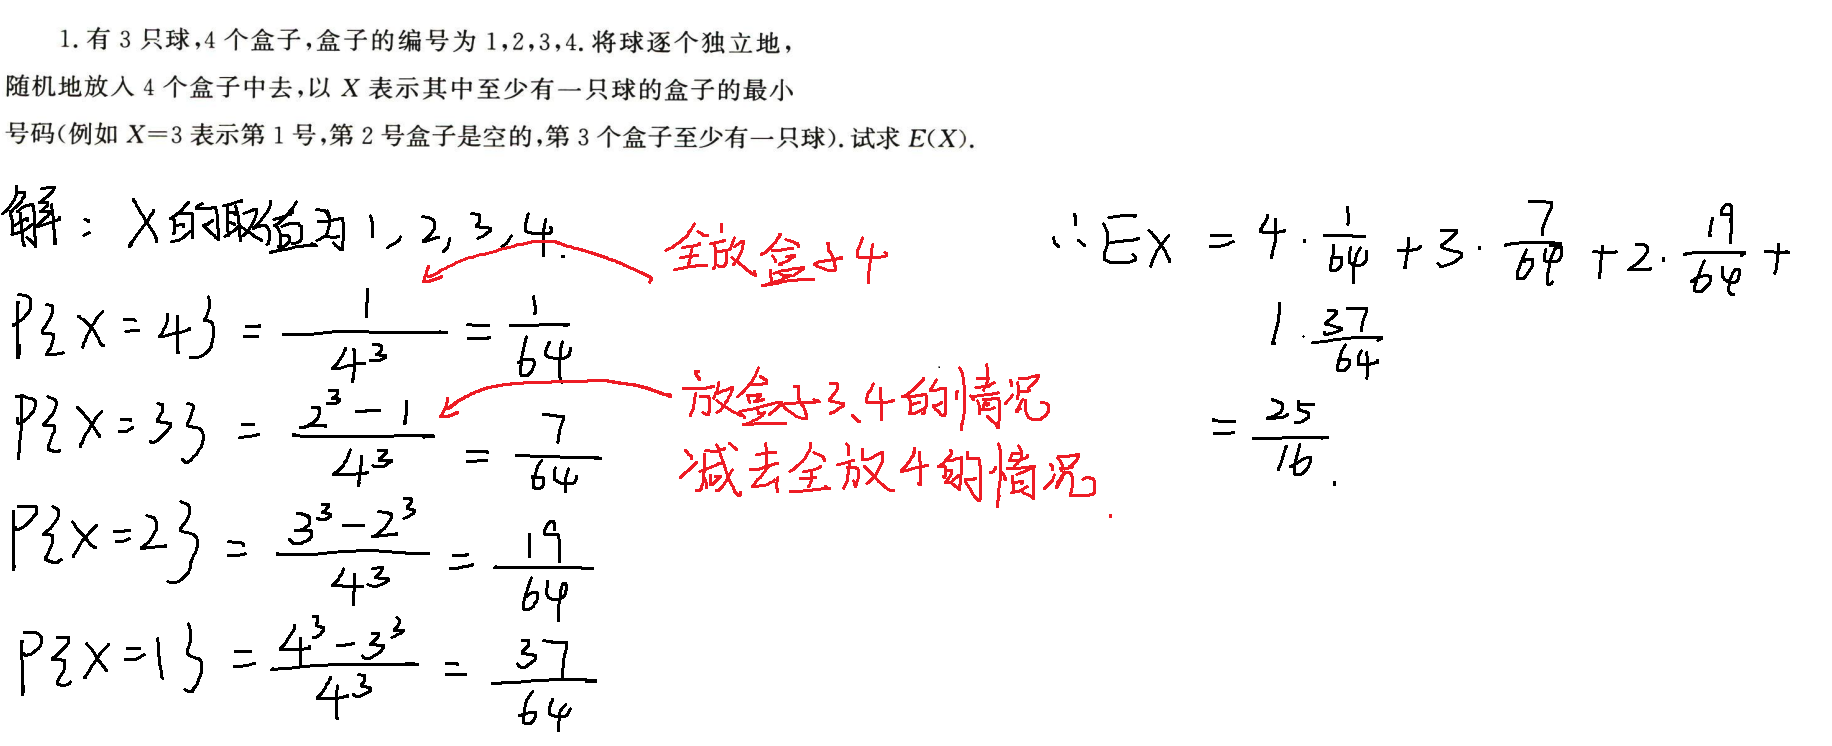 1. 有 3 只球,4 个盒子,盒子的编号为 1,2,3,4. 将球逐个独立地,
随机地放入 4 个盒子中去,以 X 表示其中至少有一只球的盒子的最小
号码(例如 X=3 表示第 1 号,第 2 号盒子是空的,第 3 个盒子至少有一只球). 试求 E(X).
解: X的取值为 1, 2, 3, 4.
全放盒子4
P{X=4} = 1/4³ = 1/64
放盒子3、4的情况
减去全放4的情况.
P{X=3} = (2³-1)/4³ = 7/64
P{X=2} = (3³-2³)/4³ = 19/64
P{X=1} = (4³-3³)/4³ = 37/64
∴EX = 4·1/64 + 3·7/64 + 2·19/64 +
1·37/64
= 25/16.